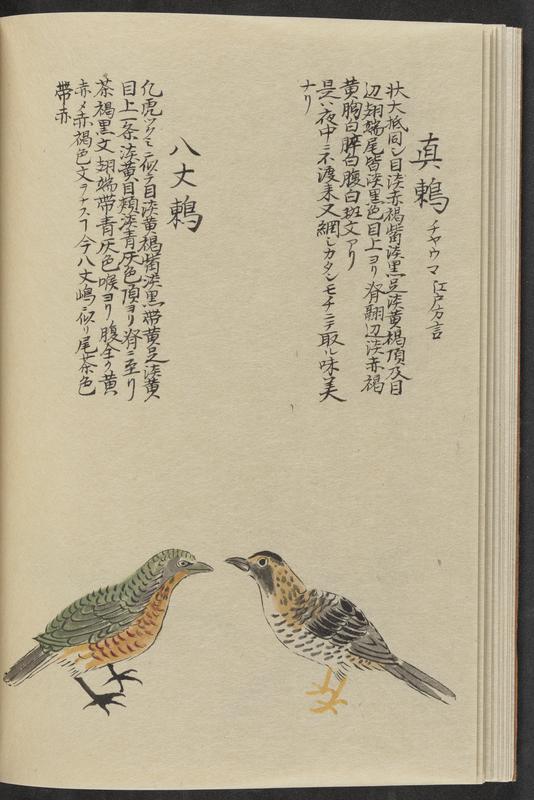 真鶫 チヤウマ 江戸方言
状大抵同シ目淡赤褐觜淡黒足淡黄褐頂及目
辺翅端尾皆淡黒色目上ヨリ脊翮辺淡赤褐
黄胸白脺白腹白斑文アリ
是ハ夜中ニ不渡来又網シカタシモチニテ取ル味美
ナリ
八丈鶫
化虎ツグミニ似テ目淡黄褐觜淡黒帯黄足淡黄
目上一条淡黄目頬淡青灰色頂ヨリ脊ニ至リ
茶褐黒文翅端帯青灰色喉ヨリ腹全ク黄
赤〆赤褐色文ヲナスヿ今八丈嶋ニ似リ尾茶色
帯赤